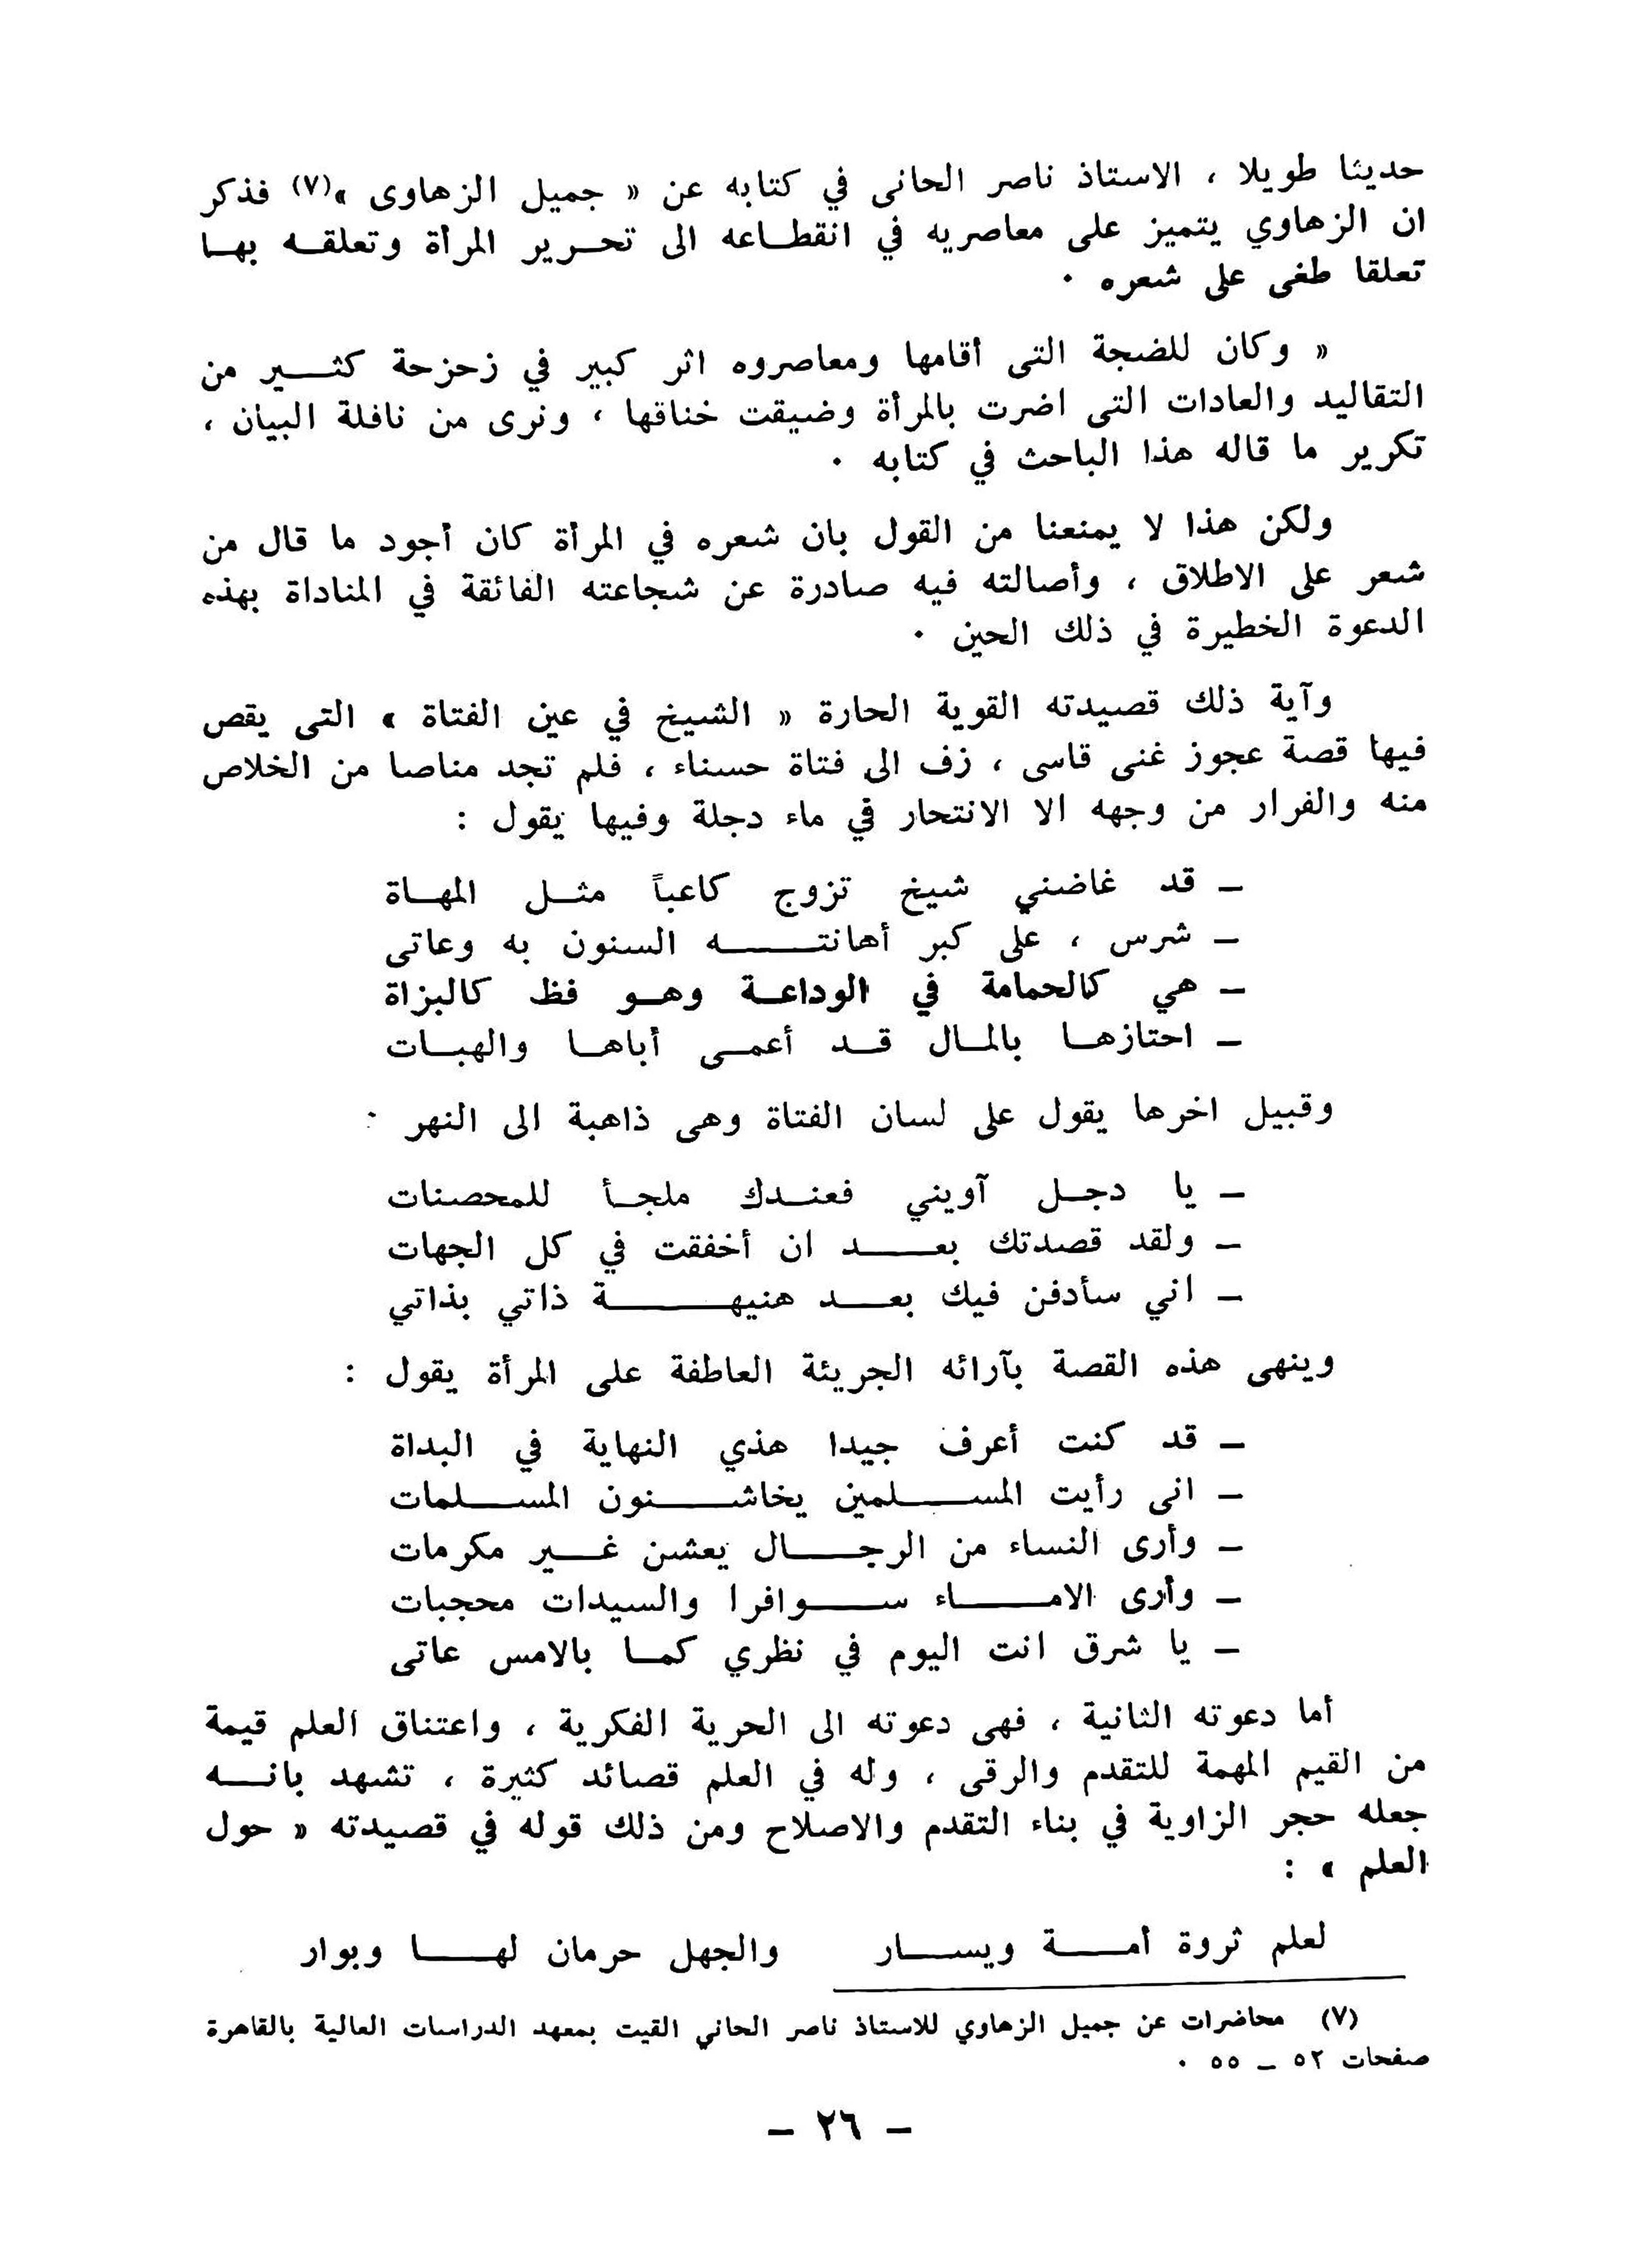 حديثا طويلا ، الاستاذ ناصر الحانى في كتابه عن « جميل الزهاوى »(٧) فذكر
ان الزهاوي يتميز على معاصريه في انقطاعه الى تحرير المرأة وتعلقه بها
تعلقا طغى على شعره ٠
« وكان للضجة التى أقامها ومعاصروه اثر كبير في زحزحة كثير من
التقاليد والعادات التى اضرت بالمرأة وضيقت خناقها ، ونرى من نافلة البيان ،
تكرير ما قاله هذا الباحث في كتابه ٠
ولكن هذا لا يمنعنا من القول بان شعره في المرأة كان أجود ما قال من
شعر على الاطلاق ، وأصالته فيه صادرة عن شجاعته الفائقة في المناداة بهذه
الدعوة الخطيرة في ذلك الحين ٠
وآية ذلك قصيدته القوية الحارة « الشيخ في عين الفتاة » التى يقص
فيها قصة عجوز غنى قاسى ، زف الى فتاة حسناء ، فلم تجد مناصا من الخلاص
منه والفرار من وجهه الا الانتحار في ماء دجلة وفيها يقول :
– قد غاضني شيخ تزوج كاعباً مثل المهاة
– شرس ، على كبر أهانته السنون به وعاتى
– هي كالحمامة في الوداعة وهو فظ كالبزاة
– احتازها بالمال قد أعمى أباها والهبات
وقبيل اخرها يقول على لسان الفتاة وهى ذاهبة الى النهر :
– يا دجل آويني فعندك ملجأ للمحصنات
– ولقد قصدتك بعد ان أخفقت في كل الجهات
– اني سأدفن فيك بعد هنيهة ذاتي بذاتي
وينهى هذه القصة بآرائه الجريئة العاطفة على المرأة يقول :
– قد كنت أعرف جيدا هذي النهاية في البداة
– انى رأيت المسلمين يخاشنون المسلمات
– وأرى النساء من الرجال يعشن غير مكرمات
– وأرى الاماء سوافرا والسيدات محجبات
– يا شرق انت اليوم في نظري كما بالامس عاتى
أما دعوته الثانية ، فهى دعوته الى الحرية الفكرية ، واعتناق العلم قيمة
من القيم المهمة للتقدم والرقى ، وله في العلم قصائد كثيرة ، تشهد بانه
جعله حجر الزاوية في بناء التقدم والاصلاح ومن ذلك قوله في قصيدته « حول
العلم » :
لعلم ثروة أمة ويسار والجهل حرمان لها وبوار
(٧) محاضرات عن جميل الزهاوي للاستاذ ناصر الحاني القيت بمعهد الدراسات العالية بالقاهرة
صفحات ٥٢ – ٥٥ ٠
– ٢٦ –